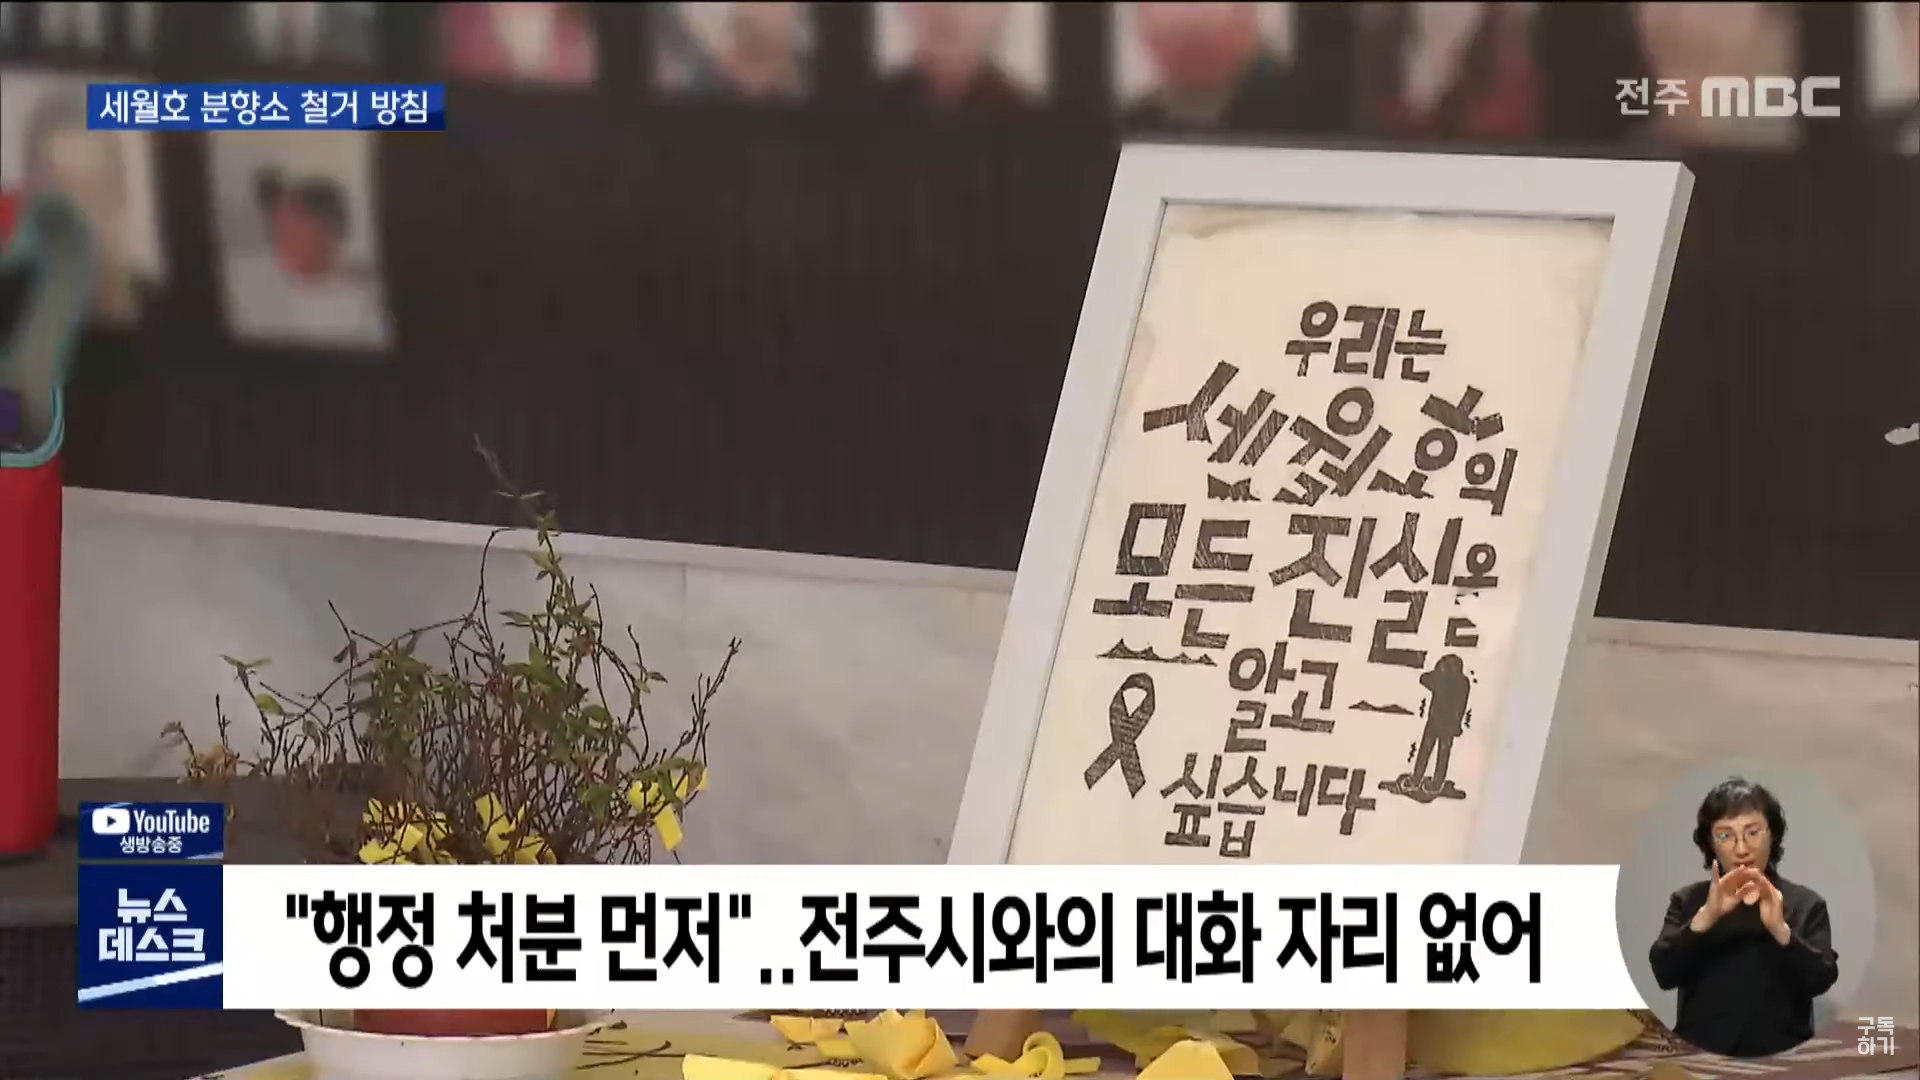 세월호 분향소 철거 방침
전주 MBC
우리는
세월호의
모든 진실을
알고
싶습니다
YouTube
생방송중
뉴스
데스크
"행정 처분 먼저"..전주시와의 대화 자리 없어
구독
하기